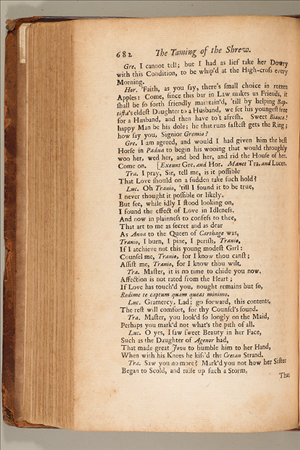 682 The Taming of the Shrew.
Gre. I cannot tell; but I had as lief take her Dowry
with this Condition, to be whip'd at the High-cross every
Morning.
Hor. 'Faith, as you say, there's small choice in rotten
Apples: Come, since this bar in Law makes us Friends, it
shall be so forth friendly maintain'd, 'till by helping Bap-
tista's eldest Daughter to a Husband, we set his youngest free
for a Husband, and then have to't afresh. Sweet Bianca!
happy Man be his dole; he that runs fastest gets the Ring;
how say you, Signior Gremio?
Gre. I am agreed, and would I had given him the best
Horse in Padua to begin his wooing that would throughly
woo her, wed her, and bed her, and rid the House of her.
Come on. [Exeunt Gre. and Hor. Manet Tra. and Lucen.
Tra. I pray, Sir, tell me, is it possible
That Love should on a sudden take such hold?
Luc. Oh Tranio, 'till I found it to be true,
I never thought it possible or likely.
But see, while idly I stood looking on,
I found the effect of Love in Idleness,
And now in plainness to confess to thee,
That art to me as secret and as dear
As Anna to the Queen of Carthage was,
Tranio, I burn, I pine, I perish, Tranio,
If I atchieve not this young modest Girl:
Counsel me, Tranio, for I know thou canst;
Assist me, Tranio, for I know thou wilt.
Tra. Master, it is no time to chide you now,
Affection is not rated from the Heart;
If Love has touch'd you, nought remains but so,
Redime te captum quam queas minimo.
Luc. Gramercy, Lad; go forward, this contents,
The rest will comfort, for thy Counsel's sound.
Tra. Master, you look'd so longly on the Maid,
Perhaps you mark'd not what's the pith of all.
Luc. O yes, I saw sweet Beauty in her Face,
Such as the Daughter of Agenor had,
That made great Jove to humble him to her Hand,
When with his Knees he kiss'd the Cretan Strand.
Tra. Saw you no more? Mark'd you not how her Sister
Began to Scold, and raise up such a Storm,
The